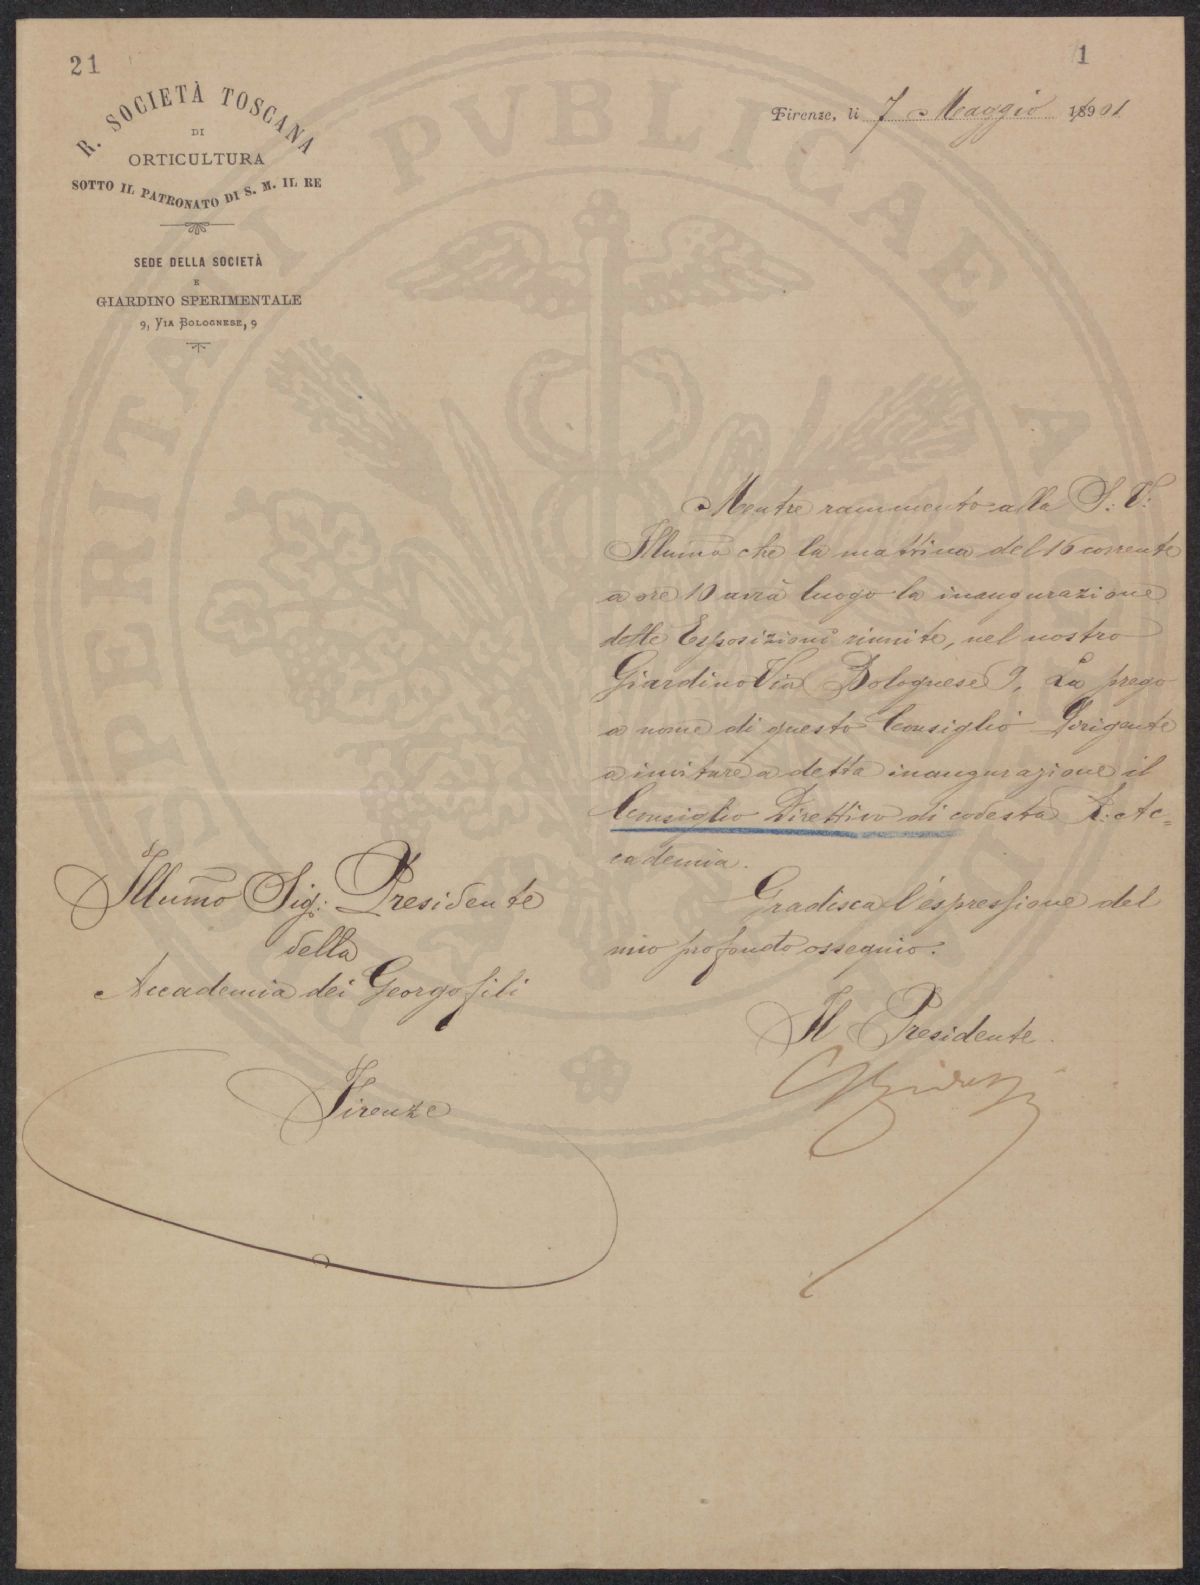 21
1
R. SOCIETÀ TOSCANA
DI
ORTICULTURA
SOTTO IL PATRONATO DI S. M. IL RE
SEDE DELLA SOCIETÀ
E
GIARDINO SPERIMENTALE
9, VIA BOLOGNESE, 9
Firenze, li 7 Maggio 18901
PROSPERITATI PVBLICAE AVGENDAE
Mentre rammento alla S: V:
Illumo che la mattina del 16 corrente
a ore 10 avrà luogo la inaugurazione
delle Esposizioni riunite, nel nostro
Giardino Via Bolognese 9, La prego
a nome di questo Consiglio Dirigente
a invitare a detta inaugurazione il
Consiglio Direttivo di codesta R: Ac=
cademia.
Gradisca l'espressione del
mio profondo ossequio.
Il Presidente
Illumo Sig: Presidente
della
Accademia dei Georgofili
Firenze